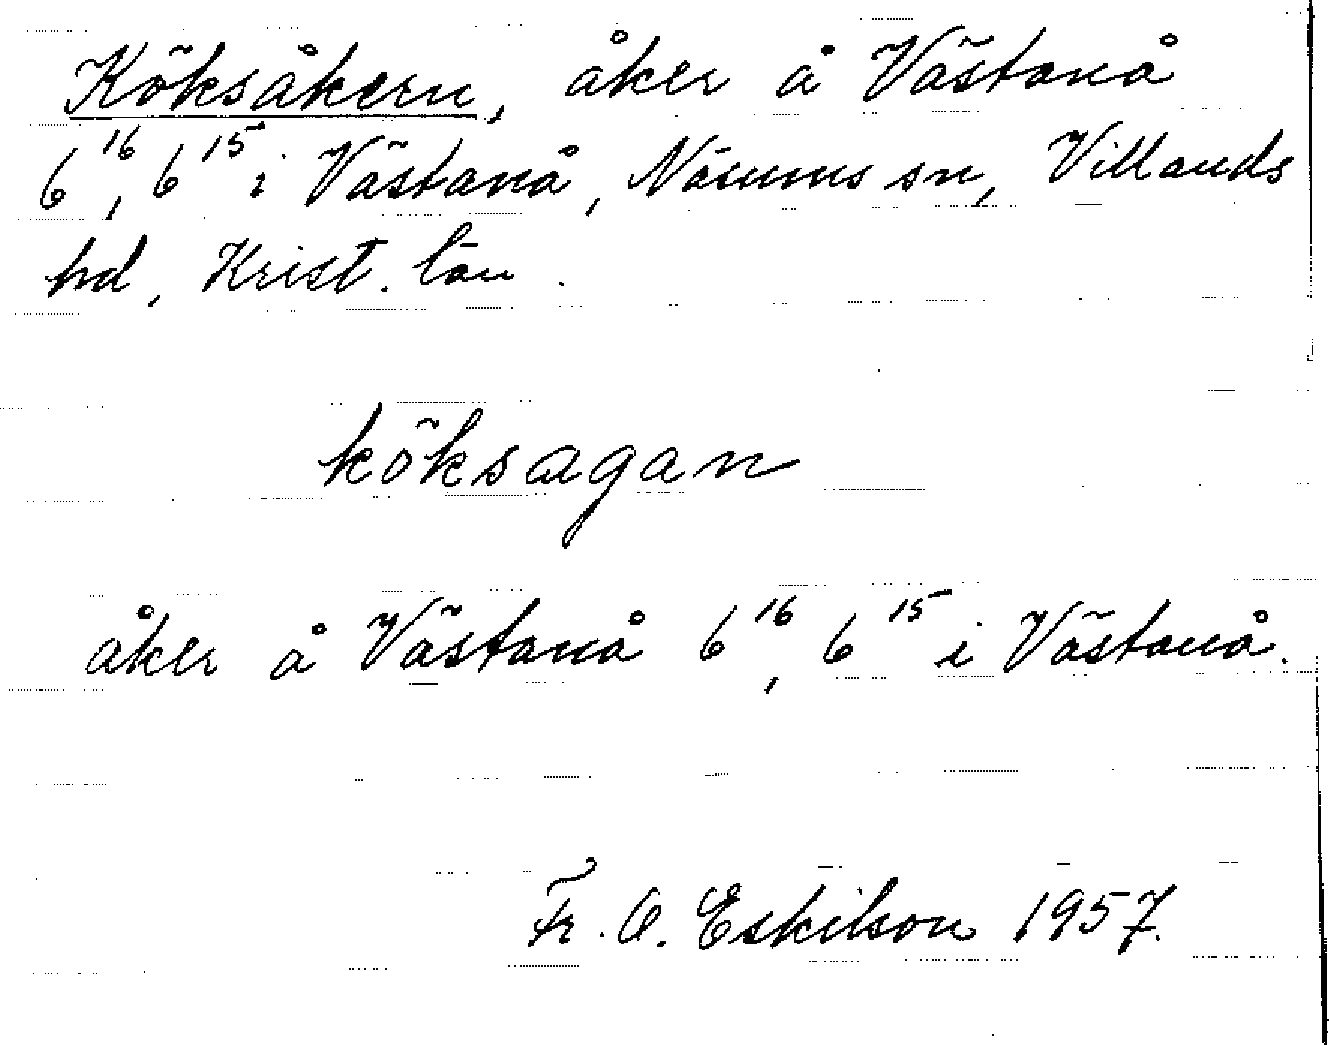 Köksåkern, åker å Västanå
6¹⁶, 6¹⁵ i Västanå, Näsums sn, Villands
hd, Krist. län.
köksagan
åker å Västanå 6¹⁶, 6¹⁵ i Västanå.
Fr. O. Eskilson 1957.